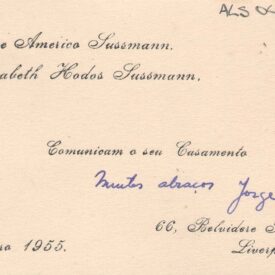 ALS
e Americo Sussmann.
abeth Hodos Sussmann.
Comunicam o seu Casamento
Muitos abraços Jorge
66, Belvidere
ro 1955.
Liverp